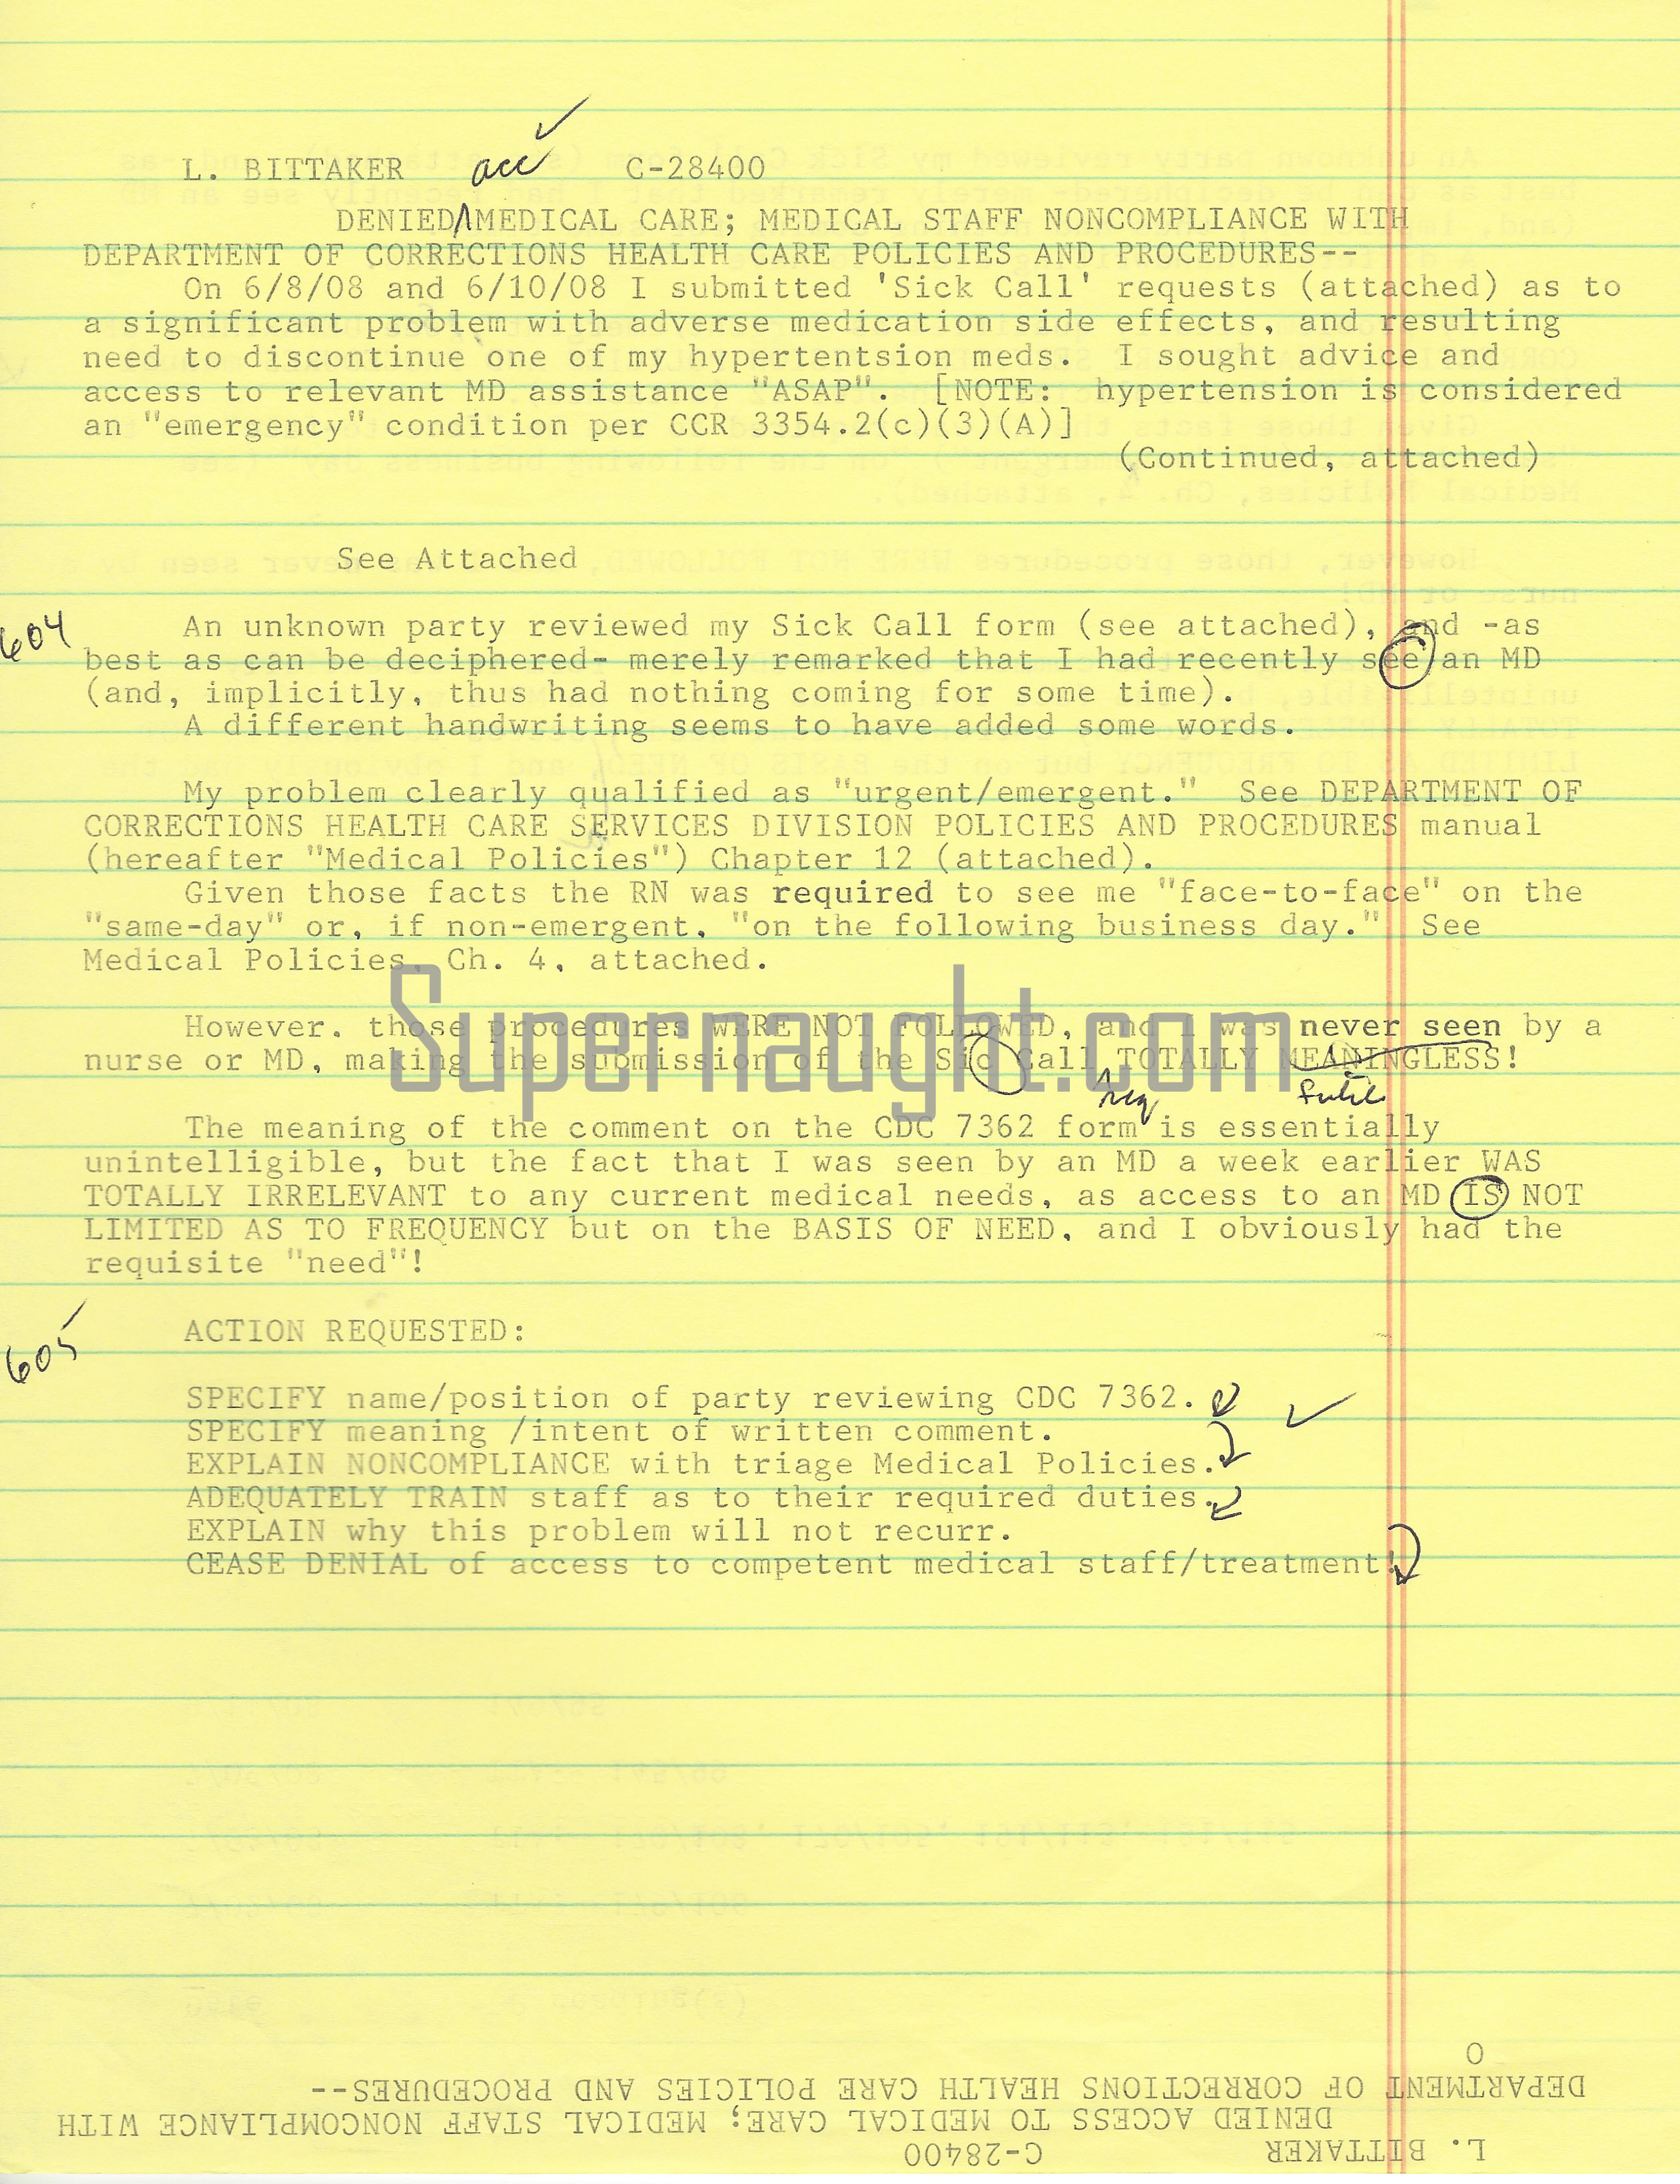 L. BITTAKER acc C-28400
DENIED MEDICAL CARE; MEDICAL STAFF NONCOMPLIANCE WITH
DEPARTMENT OF CORRECTIONS HEALTH CARE POLICIES AND PROCEDURES--
On 6/8/08 and 6/10/08 I submitted 'Sick Call' requests (attached) as to
a significant problem with adverse medication side effects, and resulting
need to discontinue one of my hypertentsion meds. I sought advice and
access to relevant MD assistance "ASAP". [NOTE: hypertension is considered
an "emergency" condition per CCR 3354.2(c)(3)(A)]
(Continued, attached)
See Attached
604
An unknown party reviewed my Sick Call form (see attached), and -as
best as can be deciphered- merely remarked that I had recently see an MD
(and, implicitly, thus had nothing coming for some time).
A different handwriting seems to have added some words.
My problem clearly qualified as "urgent/emergent." See DEPARTMENT OF
CORRECTIONS HEALTH CARE SERVICES DIVISION POLICIES AND PROCEDURES manual
(hereafter "Medical Policies") Chapter 12 (attached).
Given those facts the RN was required to see me "face-to-face" on the
"same-day" or, if non-emergent, "on the following business day." See
Medical Policies, Ch. 4, attached.
Supernaught.com
However. those procedures WERE NOT FOLLOWED, and I was never seen by a
nurse or MD, making the submission of the Sic Call TOTALLY MEANINGLESS!
req futile
The meaning of the comment on the CDC 7362 form is essentially
unintelligible, but the fact that I was seen by an MD a week earlier WAS
TOTALLY IRRELEVANT to any current medical needs, as access to an MD IS NOT
LIMITED AS TO FREQUENCY but on the BASIS OF NEED, and I obviously had the
requisite "need"!
605
ACTION REQUESTED:
SPECIFY name/position of party reviewing CDC 7362.
SPECIFY meaning /intent of written comment.
EXPLAIN NONCOMPLIANCE with triage Medical Policies.
ADEQUATELY TRAIN staff as to their required duties.
EXPLAIN why this problem will not recurr.
CEASE DENIAL of access to competent medical staff/treatment!
L. BITTAKER C-28400
DENIED ACCESS TO MEDICAL CARE; MEDICAL STAFF NONCOMPLIANCE WITH
DEPARTMENT OF CORRECTIONS HEALTH CARE POLICIES AND PROCEDURES--
O